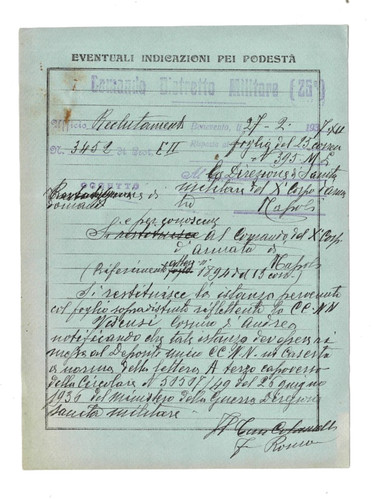 EVENTUALI INDICAZIONI PEI PODESTÀ
Comando Distretto Militare (25°)
Ufficio Reclutamento Benevento, 27-2-193
N. 3452 di Prot. E II Risposta al foglio del 23
N° 395 M.S.
OGGETTO
la Direzione di Sanità
militare del X° Corpo d'Arm
Napoli
e per conoscenza
Si restituisce al Comando del X° Corpo
d'armata di
Napoli
(Riferimento 1894 del 19 corr.)
Si restituisce la istanza pervenuta
col foglio sopradistinto riflettente la C.C. N.N.
Cosimo di Andrea
notificando che tale istanza deve essere ri
messa al Deposito C.C. N.N. in Caserta
a norma della lettera A terzo capoverso
della Circolare N° 51517/49 del 26 giugno
1936 del Ministero della Guerra Direzione
Sanità militare.
Il Colonnello
F° Romeo